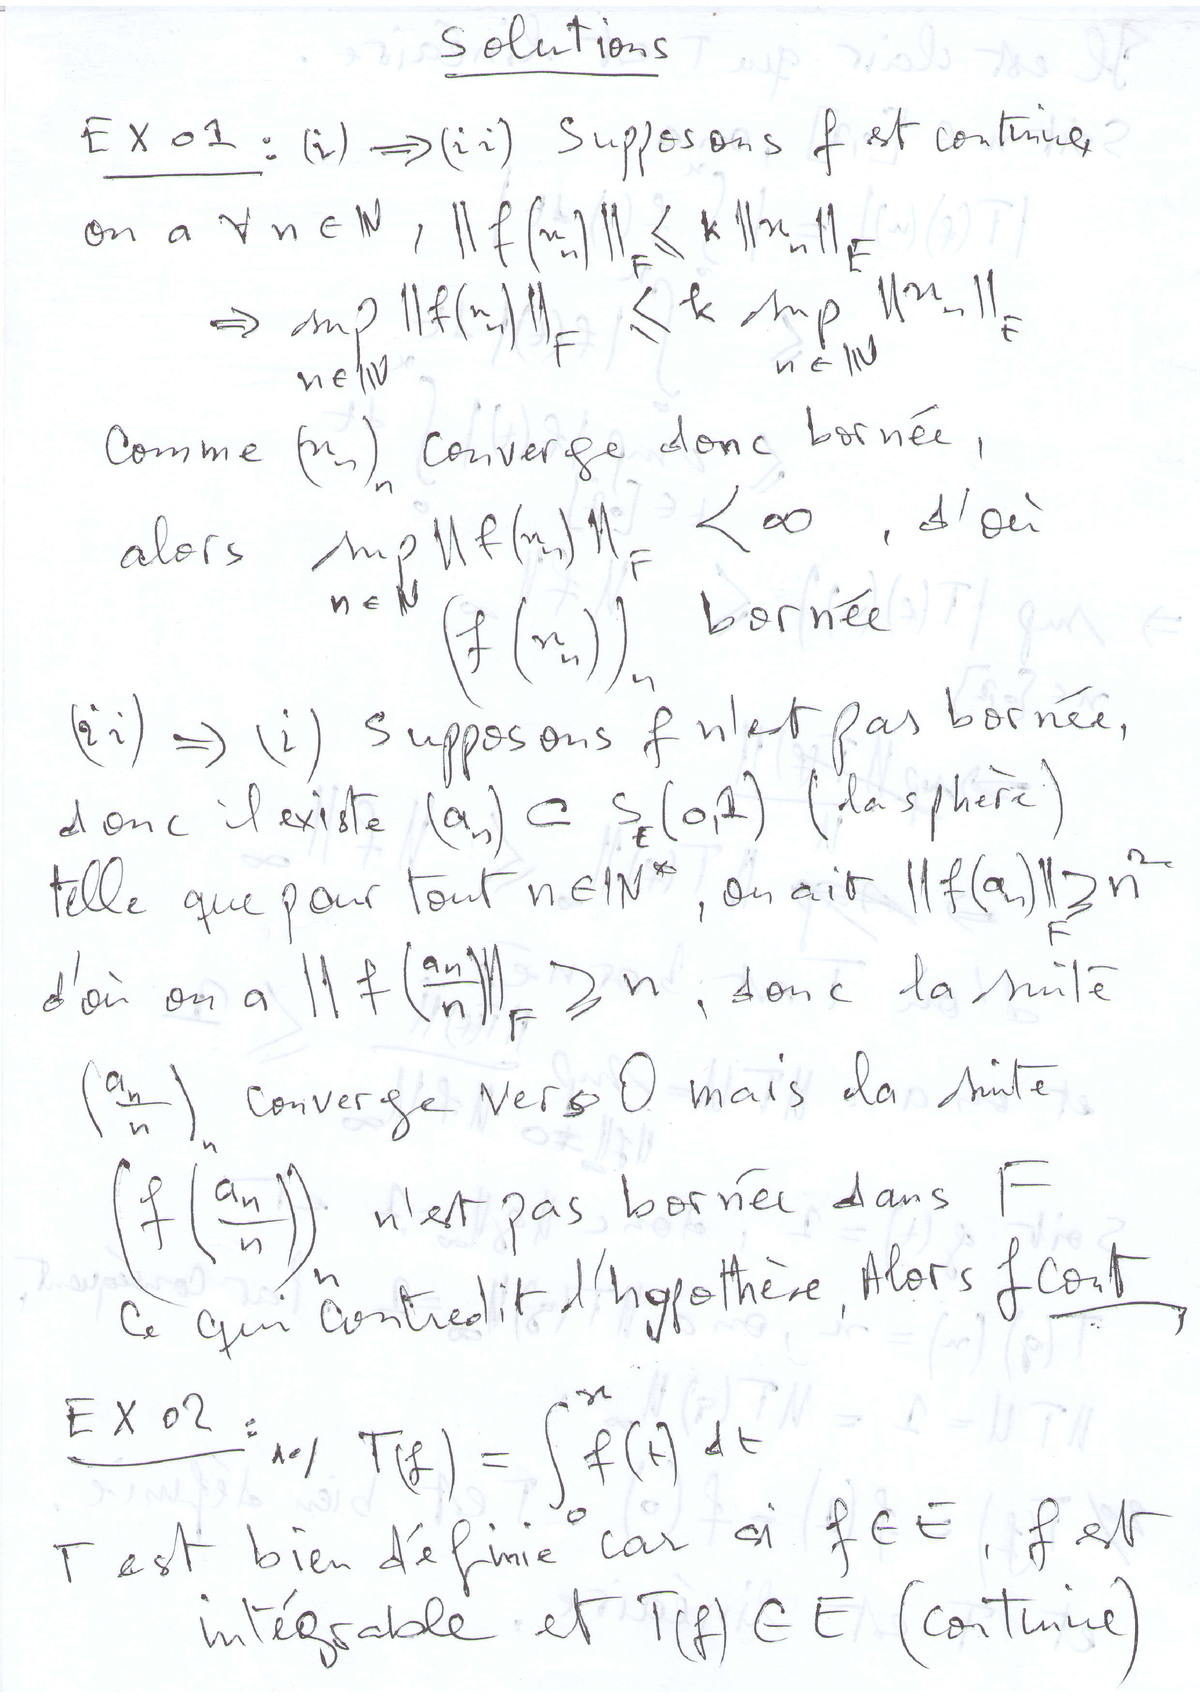 Solutions
EX 01 : (i) ⇒ (ii) Supposons f est continue,
on a ∀ n ∈ ℕ, ‖f(x_n)‖_F ≤ k ‖x_n‖_E
⇒ sup_{n ∈ ℕ} ‖f(x_n)‖_F ≤ k sup_{n ∈ ℕ} ‖x_n‖_E
Comme (x_n)_n converge donc bornée,
alors sup_{n ∈ ℕ} ‖f(x_n)‖_F < ∞, d'où
(f(x_n))_n bornée
(ii) ⇒ (i) Supposons f n'est pas bornée,
donc il existe (a_n) ⊂ S_E(0,1) (la sphère)
telle que pour tout n ∈ ℕ*, on ait ‖f(a_n)‖_F ≥ n²
d'où on a ‖f(a_n/n)‖_F ≥ n, donc la suite
(a_n/n)_n converge vers 0 mais la suite
(f(a_n/n))_n n'est pas bornée dans F
Ce qui contredit l'hypothèse, Alors f cont,
EX 02 : 1°/ T(f) = ∫_0^x f(t) dt
T est bien définie car si f ∈ E, f est
intégrable et T(f) ∈ E (continue)